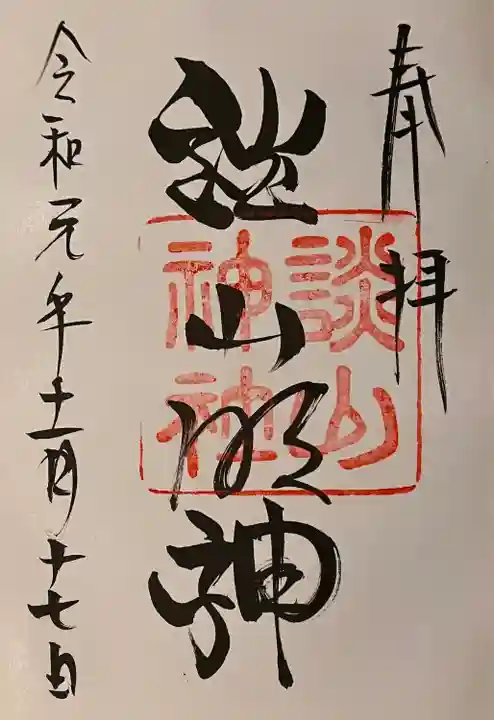 奉拝
山明神
談山
神社
令和元年十一月十七日